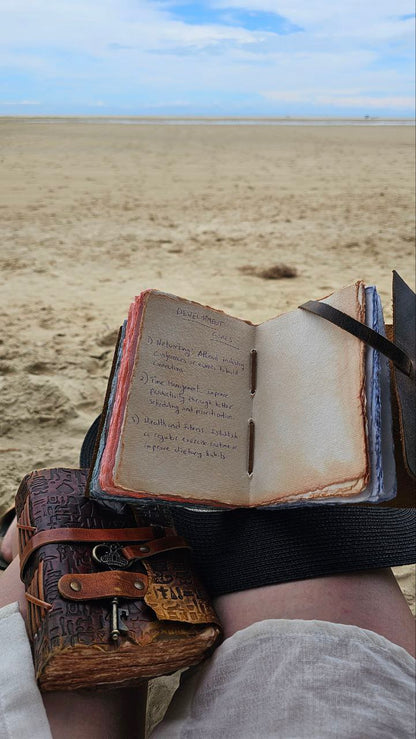 DEVELOPMENT
GOALS:
1) Networking: Attend industry
conferences or events to build
connections.
2) Time Management: improve
Productivity through better
scheduling and prioritization.
3) Health and fitness: Establish
a regular exercise routine or
improve dietary habits.